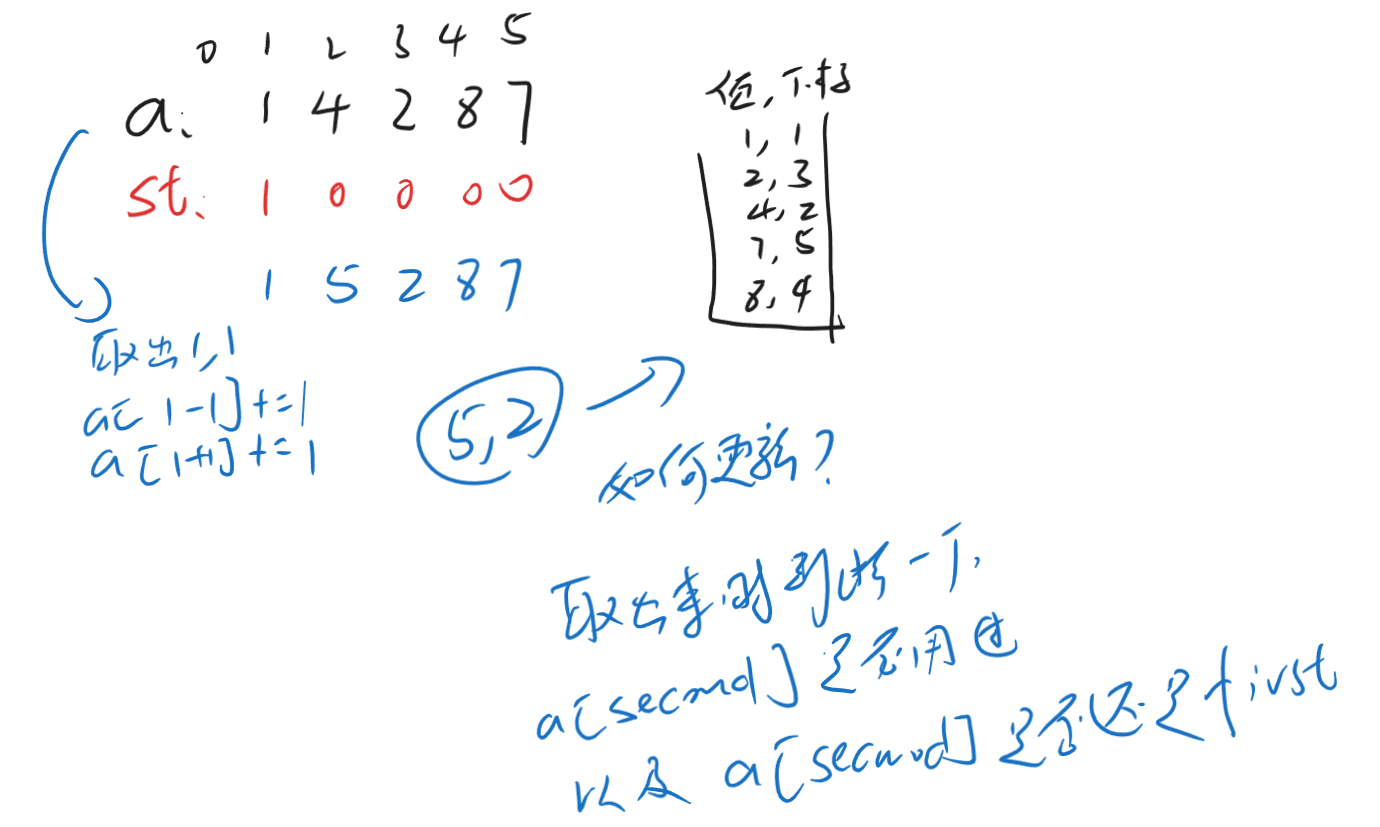 0 1 2 3 4 5
a: 1 4 2 8 7
st: 1 0 0 0 0
1 5 2 8 7
取出1,1
a[1-1]+=1
a[1+1]+=1
值,下标
1,1
2,3
4,2
7,5
8,4
5,2
如何更新?
取出来时判断一下,
a[second]是否用过
以及 a[second]是否还是first